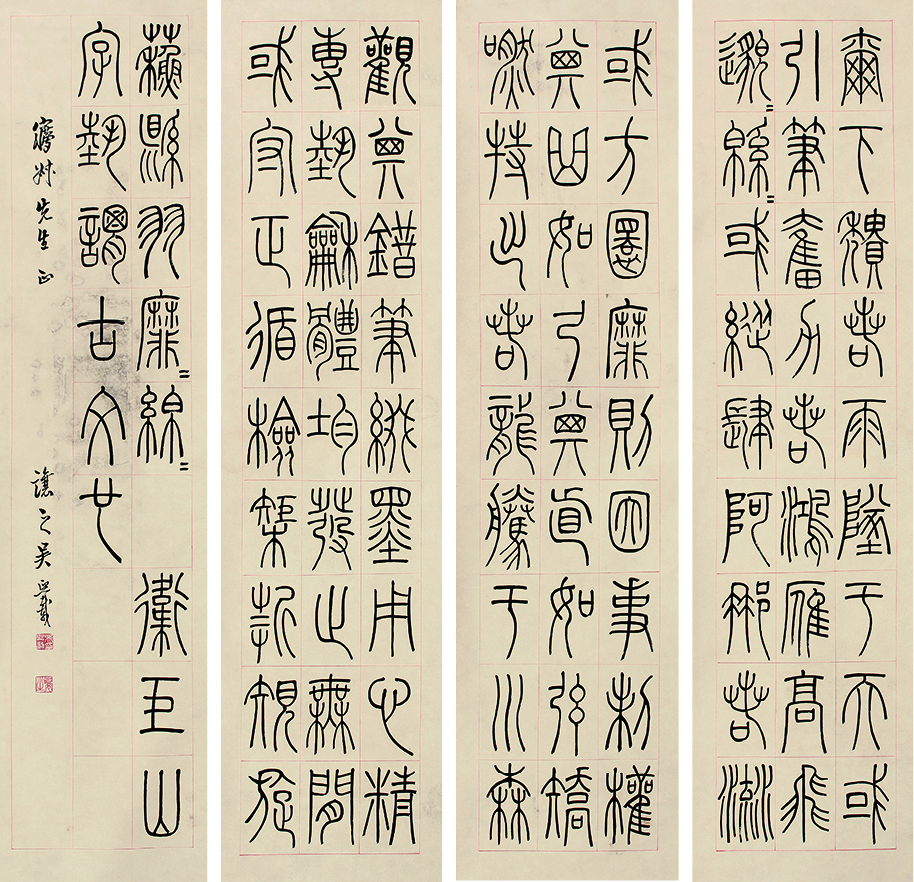 觀其錯筆綴墨用心精
專埶龢體均發止無間
或守正循檢榘折規旋
或方圜靡則因事制權
其曲如弓其直如弦矯
嘫特出若龍騰于川森
爾下穨若雨墜于天或
引筆奮力若鴻雁高飛
邈=緜=或縱肆阿那若流
蘇縣羽靡=綿= 衞巨山
字埶謂古文也
叔先生正 讓之吳熙載